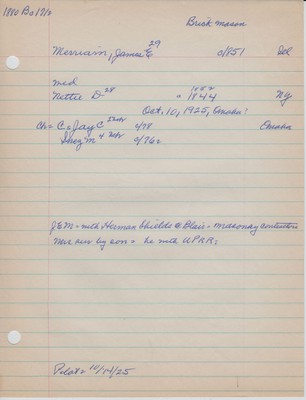 1880 Bo 17/2
Brick mason
Merriam, James E 29 o/851 Del
med
Nettie D 28 " 1852 1844 Ny
Oct. 10, 1925, Omaha:
Ch = C. Jay C 2/78 Omaha
Inez M 4 9/76
JEM = with Herman Shields @ Blair = masonry contractors
Mer sur by son = he with UPRR:
Pilot = 10/14/25